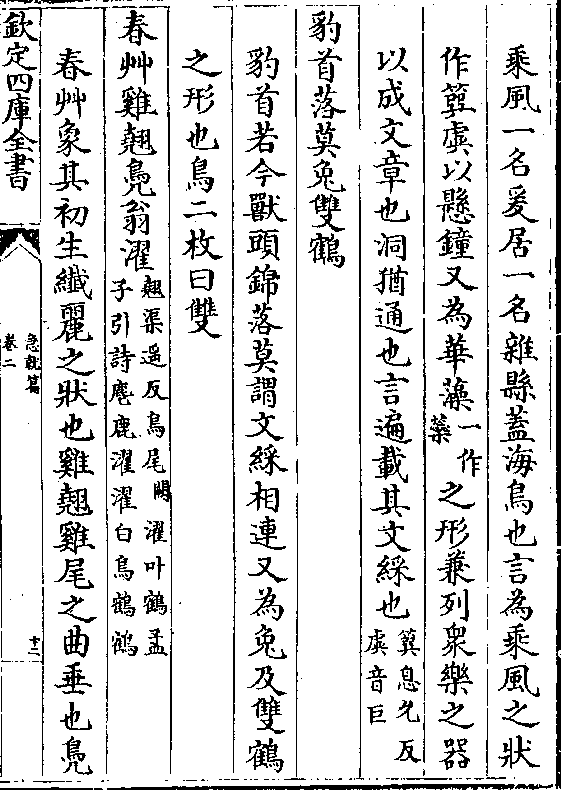 乘風一名爰居一名雜縣蓋海鳥也言為乘風之狀
作簨虡以懸鐘又為華藻一作蘂之形兼列衆樂之器
以成文章也洞猶通也言遍載其文綵也簨息允反虡音巨
豹首落莫兔雙鶴
豹首若今獸頭錦落莫謂文綵相連又為兔及雙鶴
之形也鳥二枚曰雙
春艸雞翹鳧翁濯翹渠遥反鳥尾闕濯叶鶴孟子引詩麀鹿濯濯白鳥鶴鶴
春艸象其初生纖麗之狀也雞翹雞尾之曲垂也鳧
欽定四庫全書
急就篇
卷二
十二